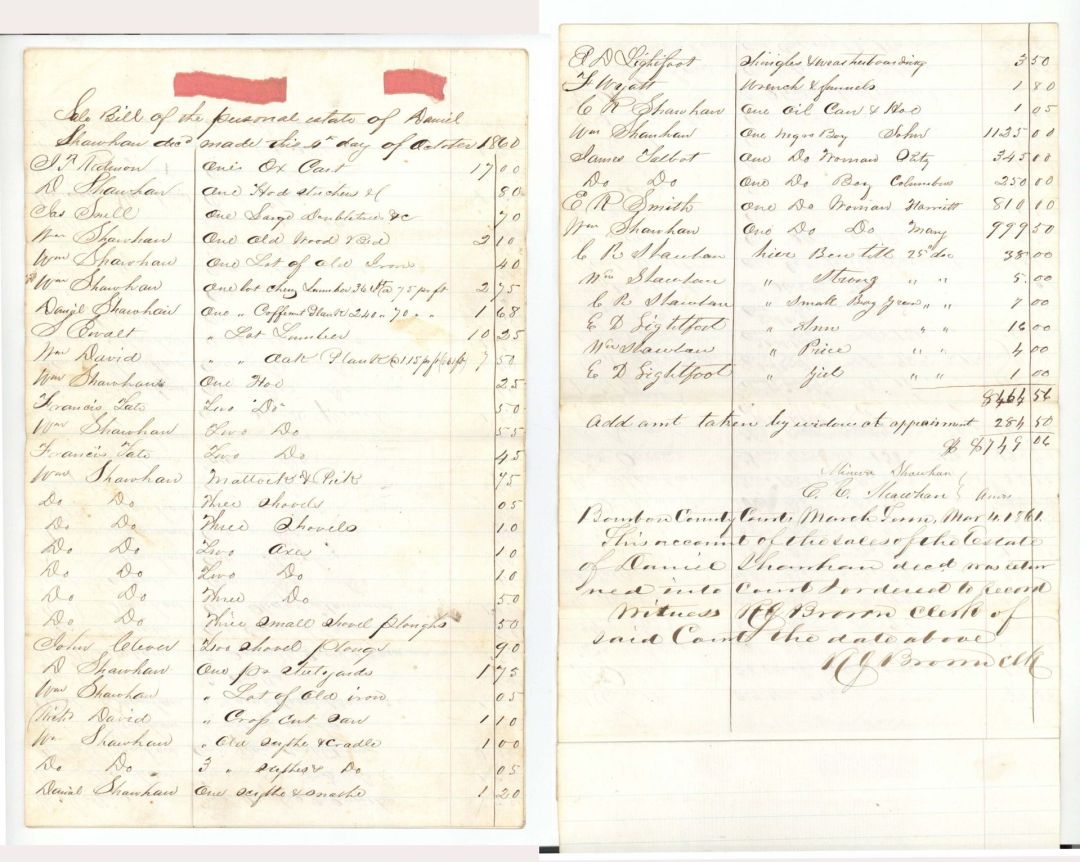 Sale Bill of the personal estate of Daniel
Shawhan decd made this 4th day of October 1860
One Ox Cart 17 00
D Shawhan One 80
Jas Snell One Large doubletree &c 70
Wm Shawhan One Old Wood Bed 2 10
Wm Shawhan One Lot of old Iron 40
Wm Shawhan One lot Lumber 36 75 pr ft 2 75
Daniel Shawhan One " Plank 240 " 70 " " 1 68
S Ewalt " Lot Lumber 10 25
Wm David " " Oak Plank 7 50
Wm Shawhan One Hoe 25
Francis Tate Two "Do" 50
Wm Shawhan Two Do 55
Francis Tate Two Do 45
Wm Shawhan Mattock & Pick 75
Do Do Three shovels 05
Do Do Three Shovels 10
Do Do Two Axes 10
Do Do Two Do 10
Do Do Three Do 50
Do Do Three small shovel ploughs 50
John Clever Two shovel plough 90
D Shawhan One pr 1 75
Wm Shawhan " Lot of Old iron 05
David " Cross cut saw 1 10
Wm Shawhan " Old scythe & cradle 1 00
Do Do 3 " scythes & Do 05
Daniel Shawhan One scythe & snathe 1 20
E D Lightfoot Shingles & weatherboarding 3 50
F Wyatt Wrench & funnels 1 80
C R Shawhan One oil Can & Hoe 1 05
Wm Shawhan One Negro Boy John 1125 00
James Talbot One Do Woman 345 00
Do Do One Do Boy Columbus 250 00
E R Smith One Do Woman Harriett 810 10
Wm Shawhan One Do Do Mary 999 50
C R Shawhan hire Ben till 25 dec 38 00
Wm Shawhan " Strong " 5 00
C R Shawhan " Small Boy Green " " 7 00
E D Lightfoot " Ann " " 16 00
Wm Shawhan " Price " " 4 00
E D Lightfoot " " " 1 00
8464 56
Add amt taken by widow at appraisment 284 50
$ 8749 06
Minerva Shawhan
C. R. Shawhan
Bourbon County Court March Term, Mar 4. 1861.
This account of the sales of the Estate
of Daniel Shawhan decd was retur
ned into Court & ordered to record
Witness RJ Brown clerk of
said Court the date above
RJ Brown clk